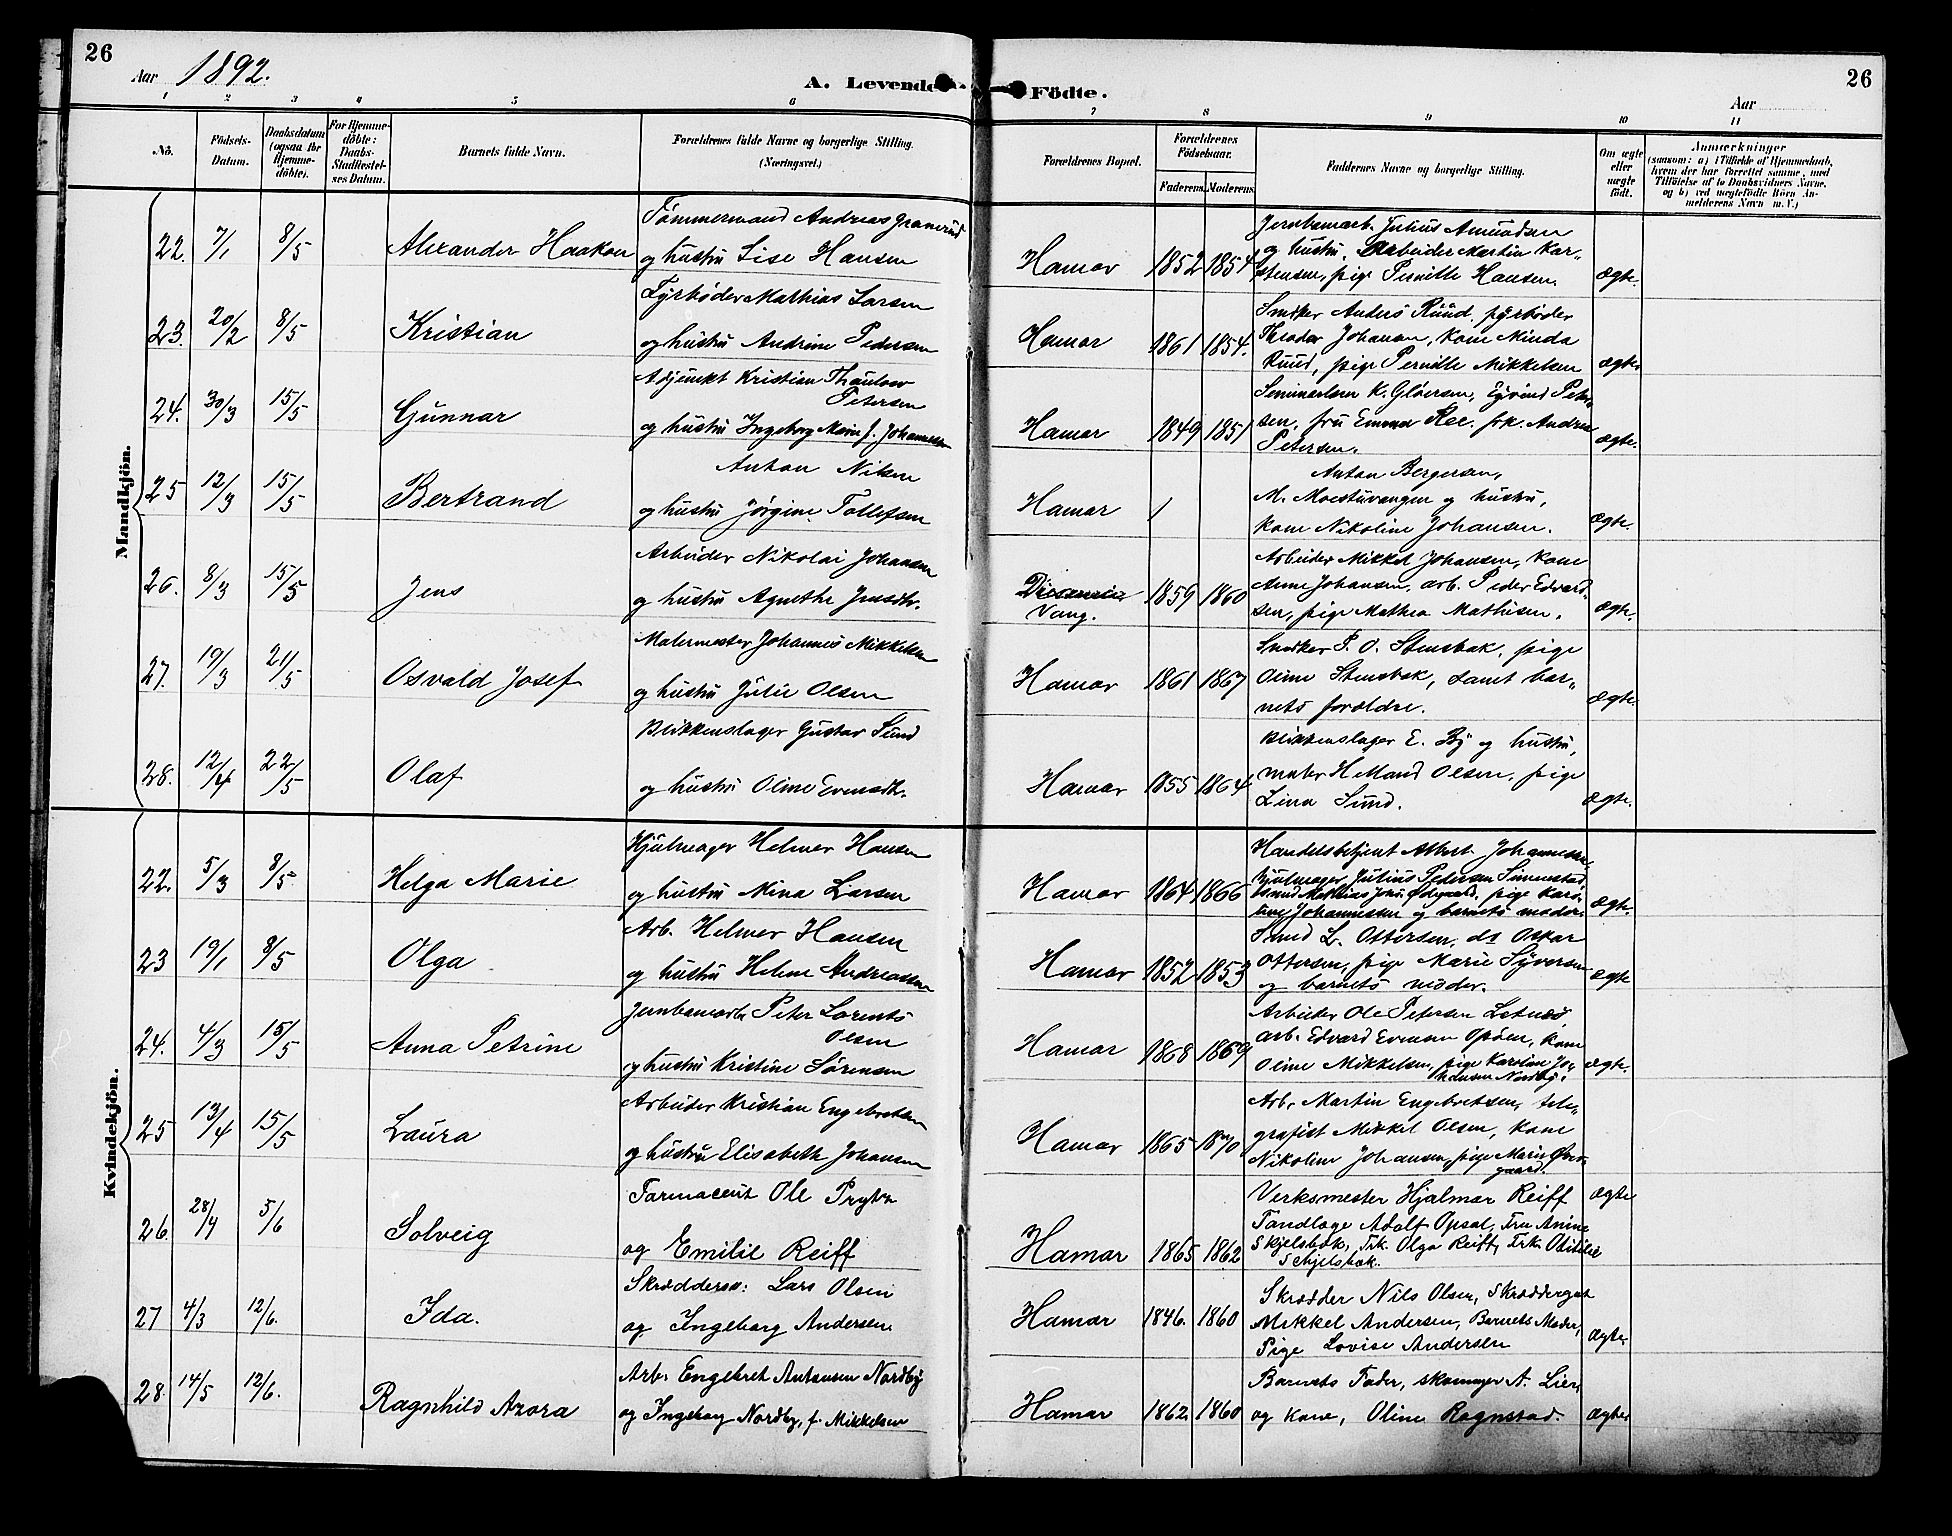 26
Aar 1892.
A. Levende Födte.
26
Aar
1 2 3 4 5 6 7 8 9 10 11
Nö.
Födsels-
Datum.
Daabsdatum
(ogsaa for
Hjemme-
döbte).
For Hjemme-
döbte:
Daabs-
Stadfæstel-
ses Datum.
Barnets fulde Navn.
Forældrenes fulde Navne og borgerlige Stilling.
(Næringsvei.)
Forældrenes Bopæl.
Forældrenes
Födselsaar.
Faderens. Moderens.
Faddernes Navne og borgerlige Stilling.
Om ægte
eller
uægte
födt.
Anmærkninger
(saasom: a) i Tilfælde af Hjemmedaab,
hvem der har forrettet samme, med
Tilföielse af to Daabsvidners Navne,
og b) ved uægtefödte Börn An-
melderens Navn m. V.)
Mandkjön.
22. 7/1 8/5 Alexander Haakon
Tømmermand Andreas Granerud
og hustru Lise Hansen
Hamar 1852 1854
Jernbanearb. Julius Amundsen
og hustru, Arbeider Martin Kar-
stensen, pige Pernille Hansen.
ægte.
23. 20/2 8/5 Kristian
Fyrbøder Mathias Larsen
og hustru Andrine Pedersen
Hamar 1861 1854.
Snekker Anders Ruud, fyrbøder
Theodor Johansen, kone Minda
Ruud, pige Pernille Mikkelsen
ægte
24. 30/3 15/5 Gunnar
Adjunkt Kristian Thaulow
Petersen
og hustru Ingeborg Marie f. Johannessen
Hamar 1849 1851
Seminarlærer K. Gløersen, Eyvind Peter-
sen, fru Emma Ree, frk. Andrea
Petersen.
ægte.
25 12/3 15/5 Bertrand
Anton Nilsen
og hustru Jørgine Tollefsen
Hamar /
Anton Bergersen,
M. Moestuvangen og hustru,
kone Nikoline Johansen.
ægte.
26. 8/3 15/5 Jens
Arbeider Nikolai Johansen
og hustru Agnethe Jensdtr.
Vang. 1859 1860
Arbeider Mikkel Johansen, kone
Anne Johansen, arb. Peder Edvard-
sen, pige Mathea Mathisen.
ægte.
27. 19/3 21/5 Osvald Josef
Malermester Johannes Mikkelsen
og hustru Julie Olsen
Hamar 1861 1867
Snekker P. O. Stensbak, pige
Oline Stensbak, samt bar-
nets forældre.
ægte.
28. 12/4 22/5 Olaf
Blikkenslager Gustav Sund
og hustru Oline Evensdtr.
Hamar 1855 1864
Blikkenslager E. By og hustru,
maler Olsen, pige
Lina Sund.
ægte.
Kvindekjön.
22. 5/3 8/5 Helga Marie
Hjulmager Helmer Hansen
og hustru Mina Larsen
Hamar 1864 1866
Handelsbetjent Albert Johannessen
hjulmager Julius Petersen Simenstad,
smed Mathias Johs. Ødegaard, pige Karo-
line Johannessen og barnets moder.
ægte.
23 19/1 8/5 Olga
Arb. Helmer Hansen
og hustru Helene Andreassen
Hamar 1852 1853
Smed L. Ottersen, do Oskar
Ottersen, pige Marie Syversen
og barnets moder.
ægte
24. 4/3 15/5 Anna Petrine
Jernbanearb. Peter Lorents
Olsen
og hustru Kristine Sørensen
Hamar 1868 1869
Arbeider Ole Petersen Letnes
arb. Edvard Evensen Opsøen, kone
Oline Mikkelsen, pige Karoline Jo-
hansen Nordby.
ægte.
25 13/4 15/5 Laura
Arbeider Kristian Engebretsen
og hustru Elisabeth Johansen
Hamar 1865 1870
Arb. Martin Engebretsen, tele-
grafist Mikkel Olsen, kone
Nikoline Johansen, pige Marie Øver-
gaard.
ægte
26. 28/4 5/6 Solveig
Farmaceut Ole Prytz
og Emilie Reiff
Hamar 1865 1862
Verksmester Hjalmar Reiff
Tandlæge Adolf Opsal, Fru Anine
Skjelsbæk, Frk. Olga Reiff, Frk. Otilie
Schjelsbæk.
27 4/3 12/6. Ida.
Skræddersv: Lars Olsen
og Ingeborg Andersen
Hamar 1846. 1860
Skrædder Nils Olsen, Skræddersv
Mikkel Andersen, Barnets Moder,
Pige Lovise Andersen
ægte.
28. 14/5 12/6. Ragnhild Azora
Arb. Engebret Antonsen Nordby
og Ingeborg Nordby, f. Mikkelsen
Hamar 1862. 1860
Barnets Fader, skomager A. Lien
og Kone, Oline Rognstad.
ægte